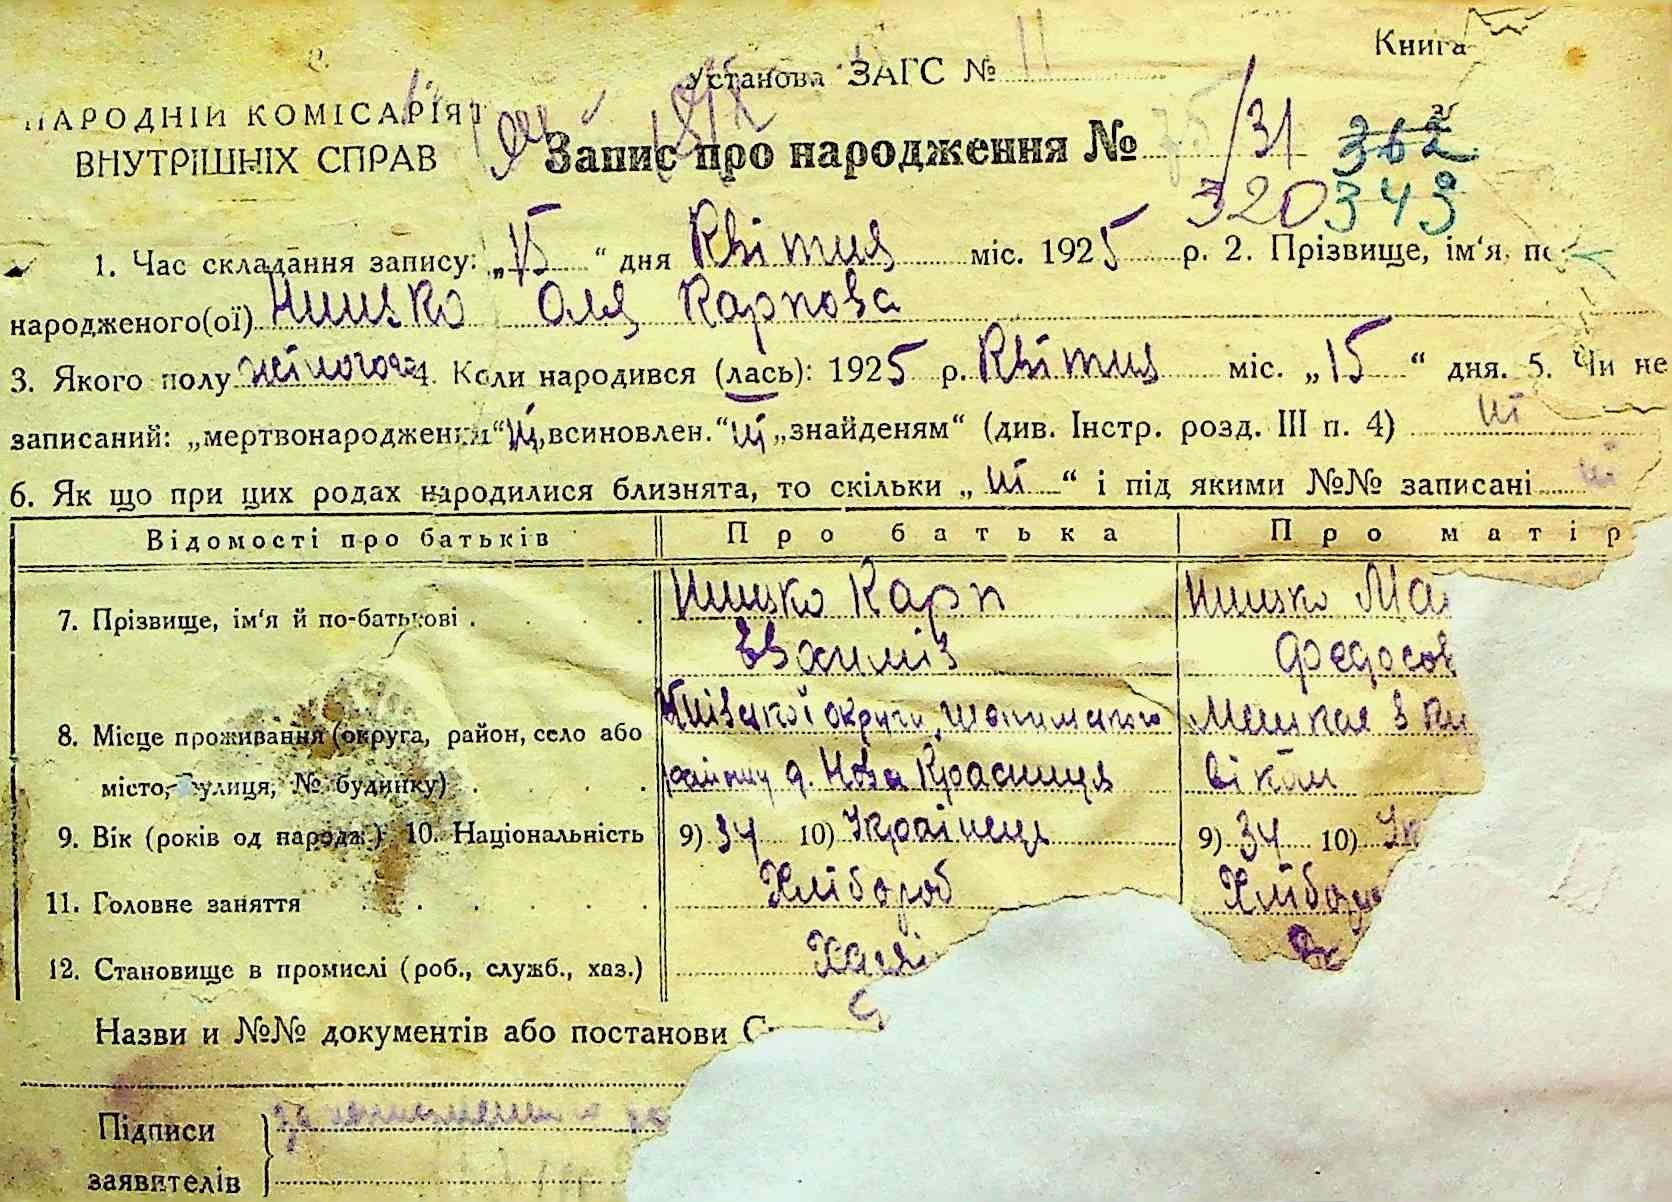 Книга
Установа ЗАГС № 11
НАРОДНІЙ КОМІСАРІЯТ
ВНУТРІШНІХ СПРАВ
Запис про народження № /31 362
320 349
1. Час складання запису: „15“ дня Квітця міс. 1925 р. 2. Прізвище, ім‘я, по
народженого(ої) Ницко Оля Карпова
3. Якого полу жіночого 4. Коли народився (лась): 1925 р. Квітця міс. „15“ дня. 5. Чи не
записаний: „мертвонароджений“ ні, „всиновлен.“ ні „знайденям“ (див. Інстр. розд. III п. 4) ні
6. Як що при цих родах народилися близнята, то скільки „ні“ і під якими №№ записані ні
Відомості про батьків Про батька Про матір
7. Прізвище, ім‘я й по-батькові . Ницко Карп Ницко Ма
Федосов
8. Місце проживання (округа, район, село або Київської округи,
місто, вулиця, № будинку) . району с. Нова Красниця
9. Вік (років од народж.) 10. Національність 9) 34 10) Українець 9) 34 10) Ук
11. Головне заняття Хлібороб Хлібор
12. Становище в промислі (роб., служб., хаз.) Хазяї
Назви и №№ документів або постанови С
Підписи
заявителів